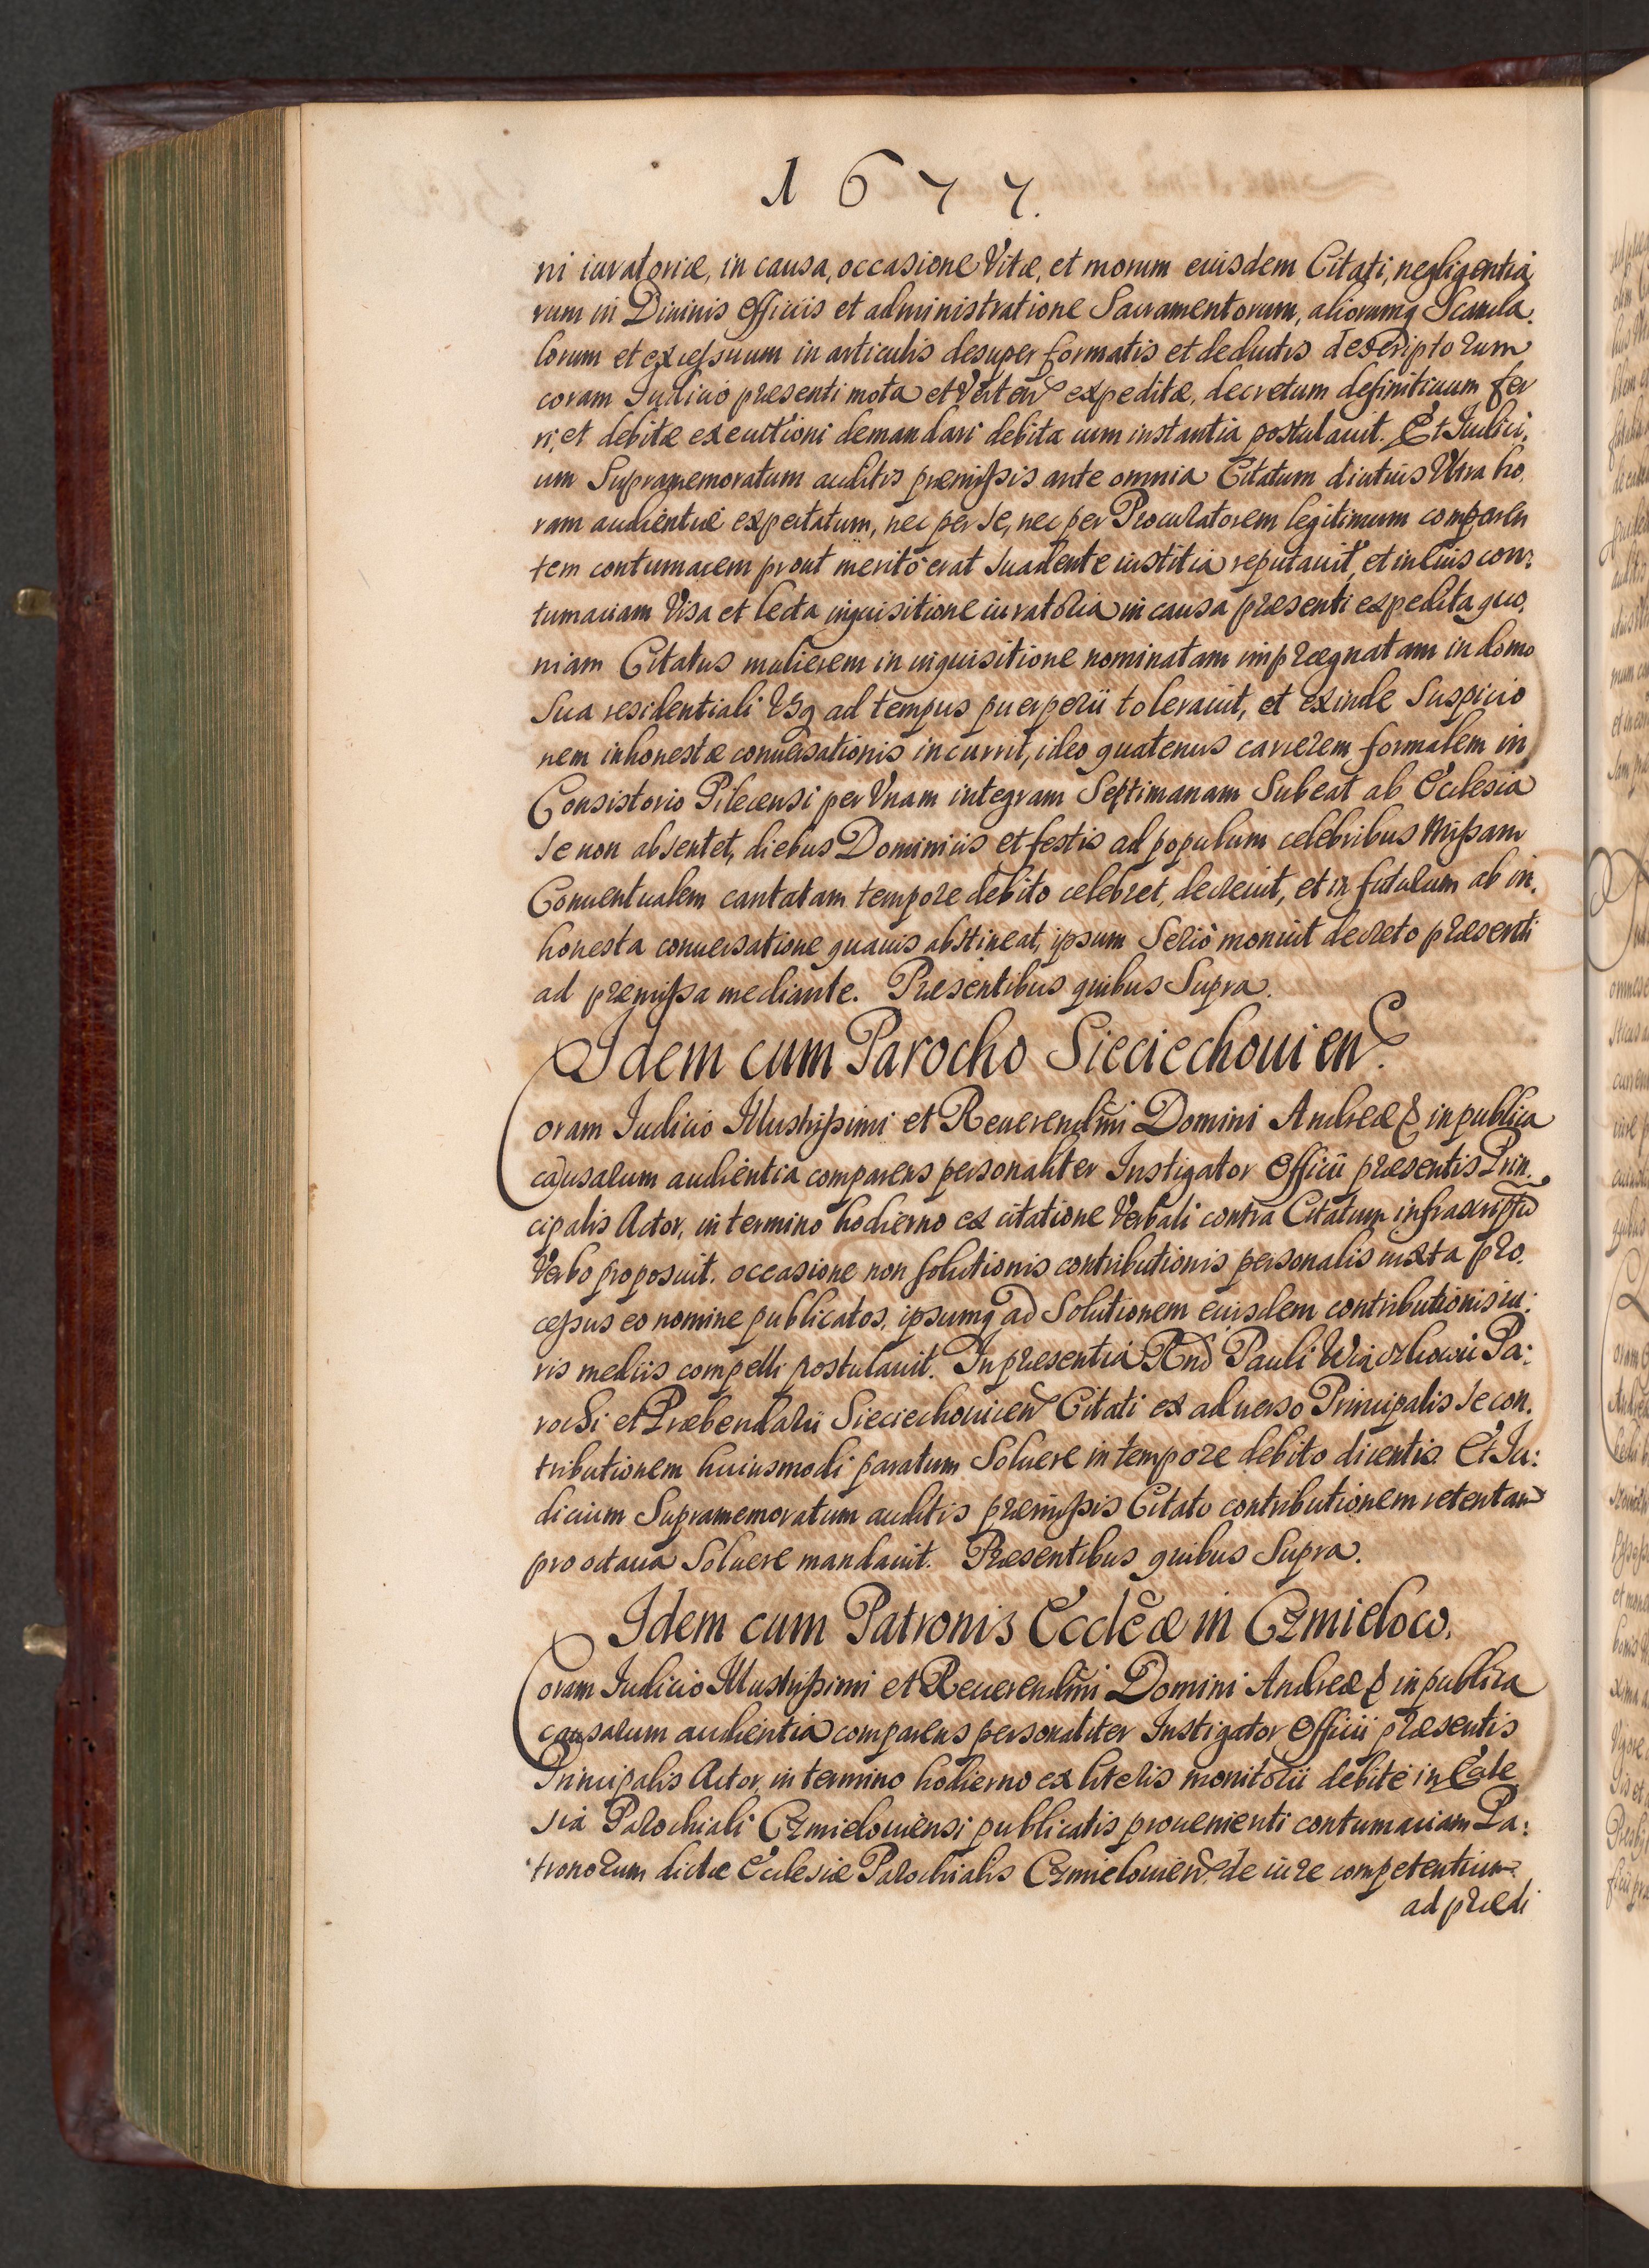 1677.
ni iuratoriæ, in causa, occasione Vitæ, et morum eiusdem Citati, negligentia
rum in Diuinis officiis et administratione Sacramentorum, aliorumq Scanda.
lorum et excessuum in articulis desuper formatis et deductis descriptorum
coram Iudicio præsenti mota et Verten expeditæ, decretum definitiuum fer
ri, et debitæ executioni demandari debita cum instantia postulauit. Et Iudici,
um Supramemoratum auditis præmissis ante omnia Citatum diutius Vltra ho,
ram audientiæ expectatum, nec per se, nec per Procuratorem legitimum comparen
tem contumacem prout meritò erat suadente iustitia reputauit, et in eius con:
tumaciam Visa et lecta inquisitione iuratoria in causa præsenti expedita quo,
niam Citatus mulierem in inquisitione nominatam imprægnatam in domo
Sua residentiali Vsq ad tempus puerperii tolerauit, et exinde Suspicio
nem inhonestæ conuersationis incurrit, ideo quatenus carcerem formalem in
Consistorio Pilecensi per Vnam integram Septimanam Subeat ab Ecclesia
se non absentet, diebus Dominicis et festis ad populum celebribus Missam
Conuentualem cantatam tempore debito celebret, decreuit, et in futurum ab in,
honesta conuersatione quauis abstineat, ipsum Seriò monuit decreto præsenti
ad præmissa mediante. Præsentibus quibus Supra.
Idem cum Parocho Sieciechouien.
Coram Iudicio Illustrissimi et Reuerendmi Domini Andreæ & in publica
causarum audientia comparens personaliter Instigator Officii præsentis Prin.
cipalis Actor, in termino hodierno ex citatione Verbali contra Citatum infrascriptu
Verbo proposuit, occasione non solutionis contributionis personalis iuxta pro.
cessus eo nomine publicatos, ipsumq ad Solutionem eiusdem contributionis iu:
ris mediis compelli postulauit. In præsentia Rnd Pauli Pa:
rochi et Præbendarii Sieciechouicen Citati ex aduerso Principalis se con.
tributionem huiusmodi paratum Soluere in tempore debito dicentis Et Iu:
dicium Supramemoratum auditis præmissis Citato contributionem retentam
pro octaua Soluere mandauit. Præsentibus quibus Supra.
Idem cum Patronis Ecclæ in Czmielow.
Coram Iudicio Illustrissimi et Reuerendmi Domini Andreæ & in publica
causarum audientia comparens personaliter Instigator Officii præsentis
Principalis Actor, in termino hodierno ex literis monitorii debitè in Eccle
sia Parochiali Czmielouiensi publicatis prouenienti contumaciam Pa:
tronorum dictæ Ecclesiæ Parochialis Czmielouien de iure competentium
ad prædi